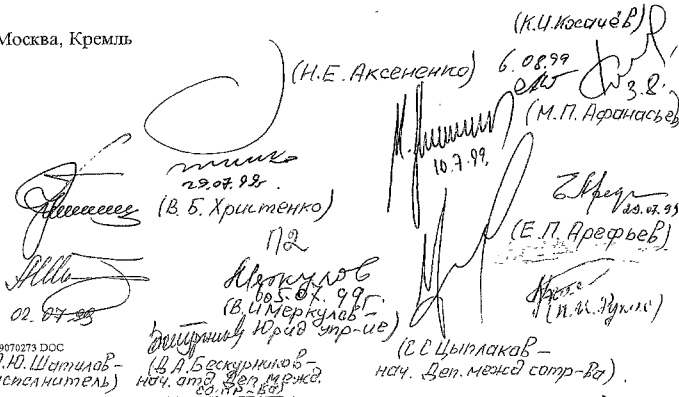 Москва, Кремль
(К.И.Косачёв)
(Н.Е. Аксененко)
6.08.99
3.8.
(М.П. Афанасьев)
10.7.99.
29.07.99.
(В.Б. Христенко)
29.07.99
(Е.П. Арефьев)
П2
Меркулов
005.07.99г.
(В.И Меркулов-
Юрид упр-ие)
02.07.99
9070273 DOC
.Ю.Шатилов-
исполнитель)
(В.А.Бескурников-
нач. отд Деп. межд.
сотр-ва)
(С.С Цыплаков-
нач. Деп. межд сотр-ва).